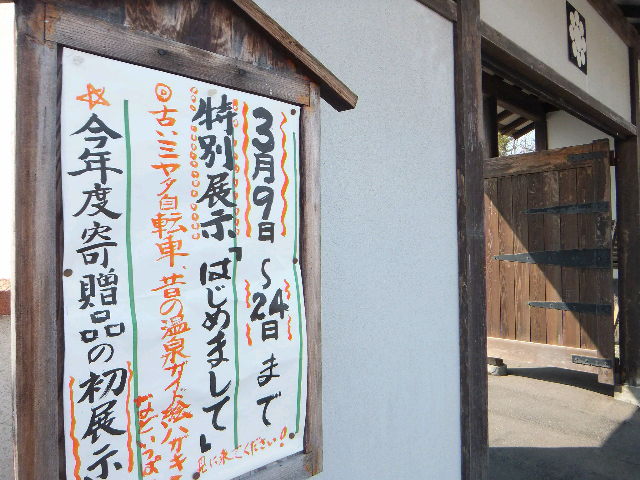 3月9日～24日まで
特別展示「はじめまして」
見に来てください!
◎古いミヤタ自転車、昔の温泉ガイド、絵ハガキ
などいろいろ
☆今年度寄贈品の初展示